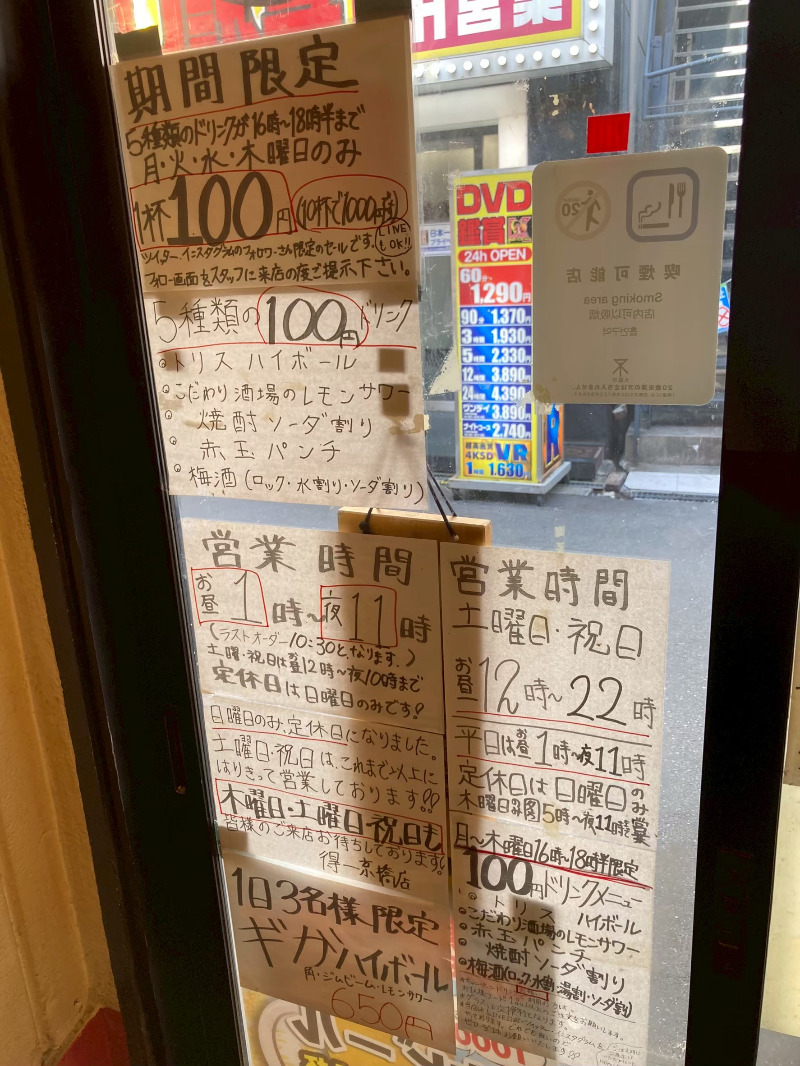 期間限定
5種類のドリンクが16時～18時半まで
月・火・水・木曜日のみ
1杯100円(10杯で1000円)
LINEもOK!!
ツイッター、インスタグラムのフォロワーさん限定のセールです。
フォロー画面をスタッフに来店の度ご提示下さい。
5種類の100円ドリンク
トリスハイボール
こだわり酒場のレモンサワー
焼酎ソーダ割り
赤玉パンチ
梅酒(ロック・水割り・ソーダ割り)
営業時間
お昼1時～夜11時
(ラストオーダー10:30となります。)
土曜・祝日は昼12時～夜10時まで
定休日は日曜日のみです!
日曜日のみ、定休日になりました。
土曜日・祝日は、これまで以上に
はりきって営業しております!!
木曜日・土曜日・祝日も
皆様のご来店お待ちしております!
得一京橋店
1日3名様限定
ギガハイボール
角・ジムビーム・レモンサワー
650円
営業時間
土曜日・祝日
お昼12時～22時
平日はお昼1時～夜11時
定休日は日曜日のみ
木曜日のみ夕5時～夜11時まで営業
月～木曜日16時～18時半限定
100円ドリンクメニュー
トリスハイボール
こだわり酒場のレモンサワー
赤玉パンチ
焼酎ソーダ割り
梅酒(ロック・水割・湯割・ソーダ割)
営業
DVD
鑑賞
24h OPEN
60分 1,290円
90分 1,370円
3時間 1,930円
5時間 2,330円
12時間 3,890円
24時間 4,390円
ワンデイ 3,890円
ナイトコース 2,740円
超高画質
4K5D VR
1時間 1,630円
20
喫煙可能店
Smoking area
店内可以吸烟